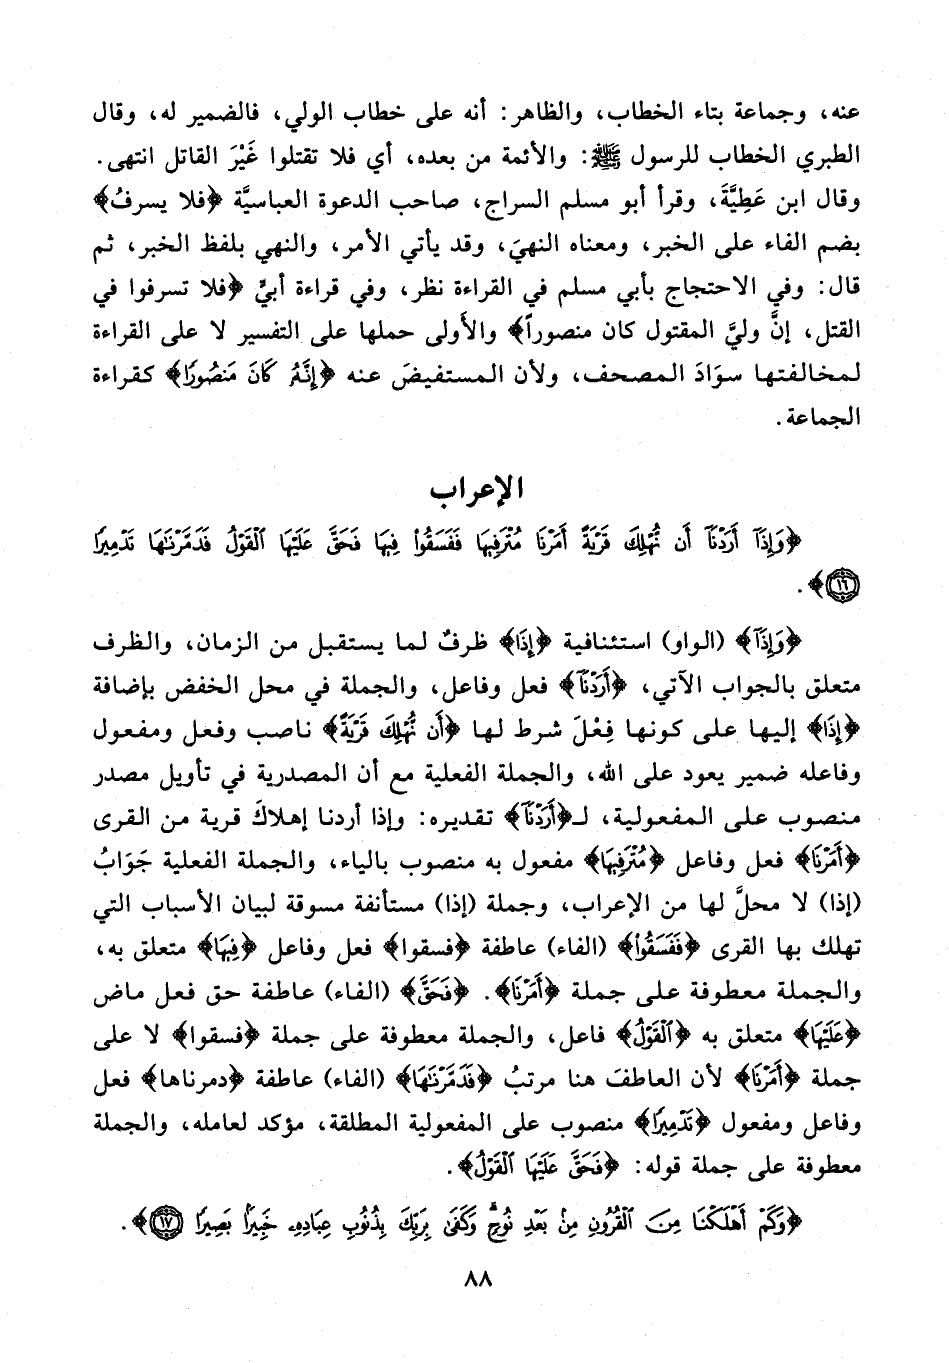 عنه، وجماعة بتاء الخطاب، والظاهر: أنه على خطاب الولي، فالضمير له، وقال
الطبري الخطاب للرسول ﷺ: والأئمة من بعده، أي فلا تقتلوا غَيْرَ القاتل انتهى.
وقال ابن عَطِيَّةَ، وقرأ أبو مسلم السراج، صاحب الدعوة العباسيَّة ﴿فلا يسرفُ﴾
بضم الفاء على الخبر، ومعناه النهيَ، وقد يأتي الأمر، والنهي بلفظ الخبر، ثم
قال: وفي الاحتجاج بأبي مسلم في القراءة نظر، وفي قراءة أبيٍّ ﴿فلا تسرفوا في
القتل، إنَّ وليَّ المقتول كان منصوراً﴾ والأَولى حملها على التفسير لا على القراءة
لمخالفتها سوَادَ المصحف، ولأن المستفيضَ عنه ﴿إِنَّهُ كَانَ مَنصُورًا﴾ كقراءة
الجماعة.
الإعراب
﴿وَإِذَآ أَرَدْنَآ أَن نُّهْلِكَ قَرْيَةً أَمَرْنَا مُتْرَفِيهَا فَفَسَقُوا۟ فِيهَا فَحَقَّ عَلَيْهَا ٱلْقَوْلُ فَدَمَّرْنَـٰهَا تَدْمِيرًا
١٦﴾.
﴿وَإِذَآ﴾ (الواو) استئنافية ﴿إِذَا﴾ ظرفٌ لما يستقبل من الزمان، والظرف
متعلق بالجواب الآتي، ﴿أَرَدْنَآ﴾ فعل وفاعل، والجملة في محل الخفض بإضافة
﴿إِذَا﴾ إليها على كونها فِعْلَ شرط لها ﴿أَن نُّهْلِكَ قَرْيَةً﴾ ناصب وفعل ومفعول
وفاعله ضمير يعود على الله، والجملة الفعلية مع أن المصدرية في تأويل مصدر
منصوب على المفعولية، لـ﴿أَرَدْنَآ﴾ تقديره: وإذا أردنا إهلاكَ قرية من القرى
﴿أَمَرْنَا﴾ فعل وفاعل ﴿مُتْرَفِيهَا﴾ مفعول به منصوب بالياء، والجملة الفعلية جَوَابُ
(إذا) لا محلَّ لها من الإعراب، وجملة (إذا) مستأنفة مسوقة لبيان الأسباب التي
تهلك بها القرى ﴿فَفَسَقُوا۟﴾ (الفاء) عاطفة ﴿فسقوا﴾ فعل وفاعل ﴿فِيهَا﴾ متعلق به،
والجملة معطوفة على جملة ﴿أَمَرْنَا﴾. ﴿فَحَقَّ﴾ (الفاء) عاطفة حق فعل ماض
﴿عَلَيْهَا﴾ متعلق به ﴿ٱلْقَوْلُ﴾ فاعل، والجملة معطوفة على جملة ﴿فسقوا﴾ لا على
جملة ﴿أَمَرْنَا﴾ لأن العاطفَ هنا مرتبٌ ﴿فَدَمَّرْنَـٰهَا﴾ (الفاء) عاطفة ﴿دمرناها﴾ فعل
وفاعل ومفعول ﴿تَدْمِيرًا﴾ منصوب على المفعولية المطلقة، مؤكد لعامله، والجملة
معطوفة على جملة قوله: ﴿فَحَقَّ عَلَيْهَا ٱلْقَوْلُ﴾.
﴿وَكَمْ أَهْلَكْنَا مِنَ ٱلْقُرُونِ مِنۢ بَعْدِ نُوحٍ ۗ وَكَفَىٰ بِرَبِّكَ بِذُنُوبِ عِبَادِهِۦ خَبِيرًۢا بَصِيرًا ١٧﴾.
٨٨